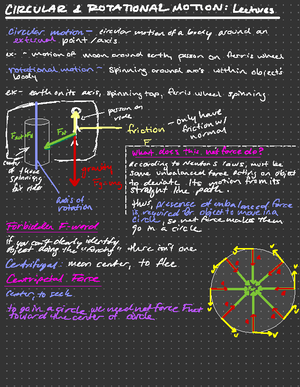 CIRCULAR & ROTATIONAL MOTION: Lectures
circular motion - circular motion of a body around an
external point/axis
ex. - motion of moon around earth, person on ferris wheel
rotational motion - spinning around axis within object's
body
ex - earth on its axis, spinning top, ferris wheel spinning
person on
ride
friction - only have
friction w/
normal
F
gravity
center
of these
spinning
air ride
axis of
rotation
What does this net force do?
According to Newton's laws, must be
some unbalanced force acting on object
to deviate its motion from its
straight line path.
thus, presence of unbalanced force
is required for object to move in a
circle, so net force makes them
go in a circle
Forbidden F-word
if you can't clearly identify
object doing the "there isn't one
Centrifugal: mean center, to flee
Centripetal Force
center, to seek
to go in a circle, we need net force Fnet
toward the center of circle